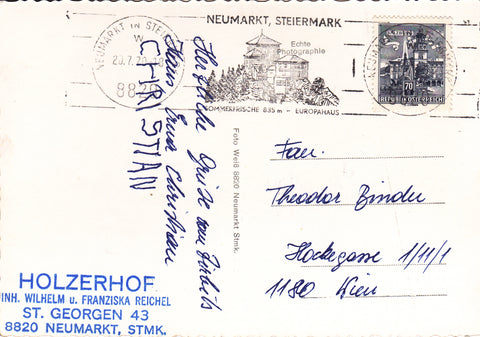 NEUMARKT, STEIERMARK
NEUMARKT IN STEI
20.7.7
8820
Echte
Photographie
SOMMERFRISCHE 835 m - EUROPAHAUS
70
REPUBLIK ÖSTERREICH
Herzliche Grüße vom
Hans Erna Christian
CHRISTIAN
Foto Weiß 8820 Neumarkt Stmk.
Fam.
Theodor Binder
Hockegasse 1/11/1
1180 Wien
HOLZERHOF
INH. WILHELM u. FRANZISKA REICHEL
ST. GEORGEN 43
8820 NEUMARKT, STMK.